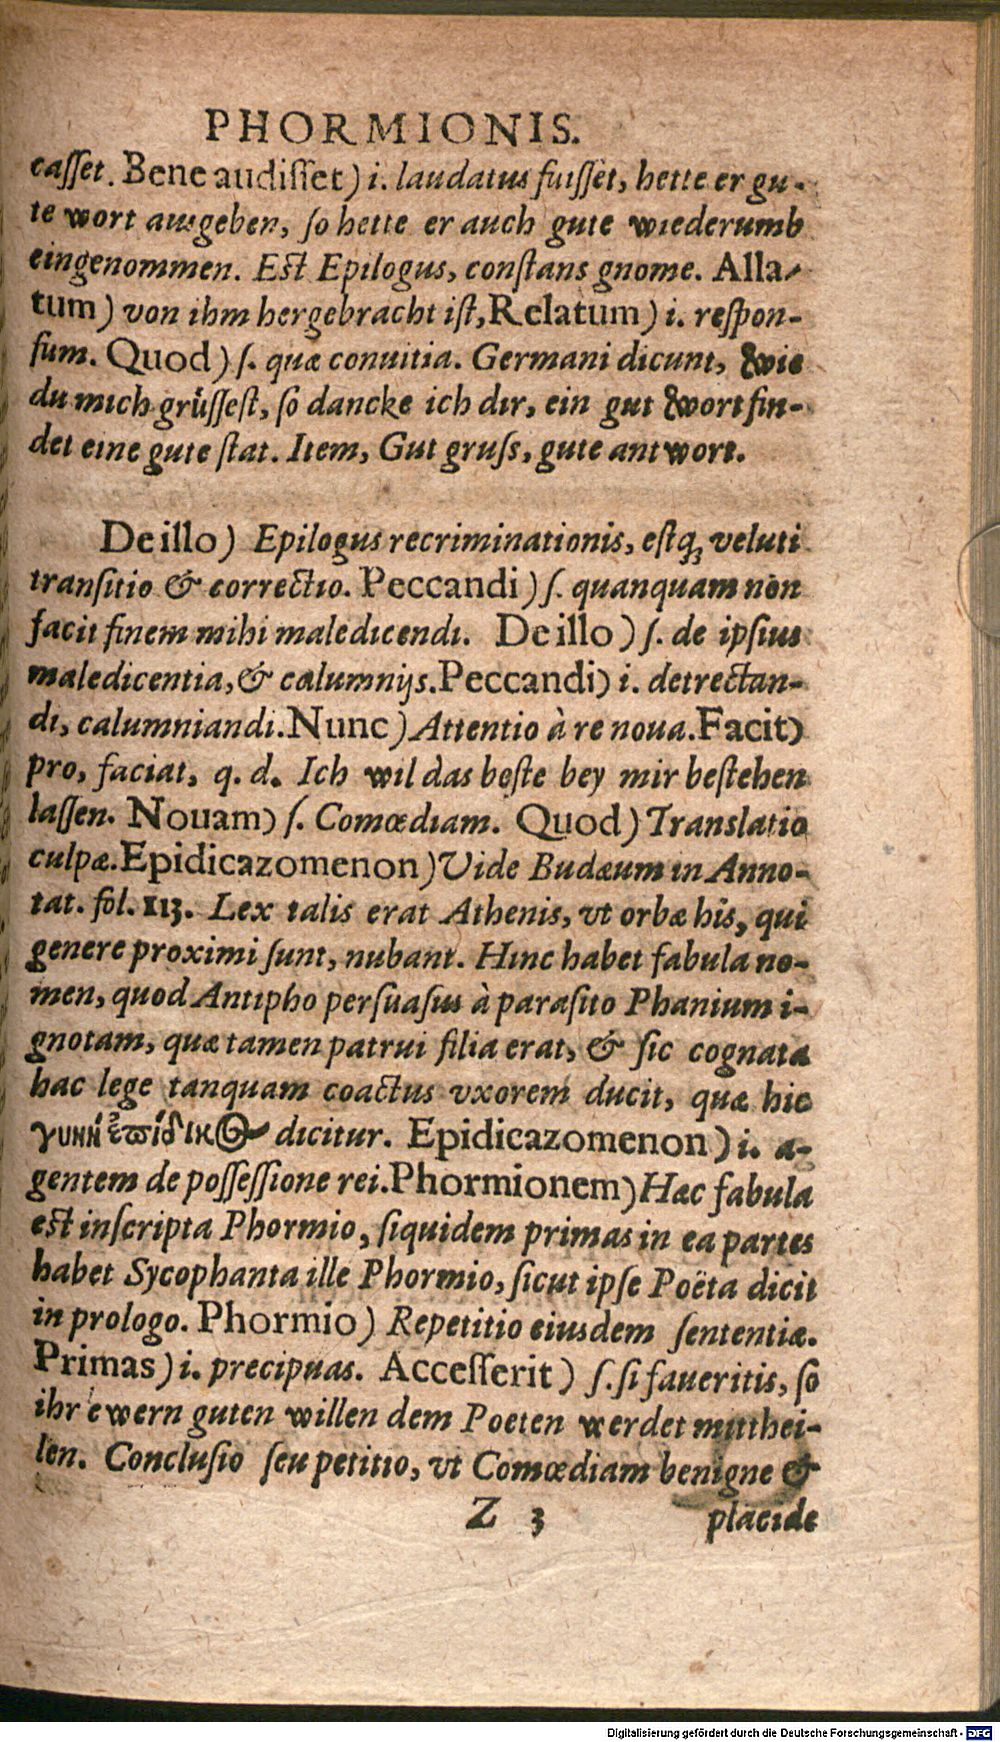 PHORMIONIS.
casset. Bene audisset) i. laudatus fuisset, hette er gu-
te wort ausgeben, so hette er auch gute wiederumb
eingenommen. Est Epilogus, constans gnome. Alla-
tum) von ihm hergebracht ist, Relatum) i. respon-
sum. Quod) s. quæ conuitia. Germani dicunt, wie
du mich grüssest, so dancke ich dir, ein gut wort fin-
det eine gute stat. Item, Gut gruss, gute antwort.
De illo) Epilogus recriminationis, estq́; veluti
transitio & correctio. Peccandi) s. quanquam non
facit finem mihi maledicendi. De illo) s. de ipsius
maledicentia, & calumnijs. Peccandi) i. detrectan-
di, calumniandi. Nunc) Attentio à re noua. Facit)
pro, faciat, q. d. Ich wil das beste bey mir bestehen
lassen. Nouam) s. Comœdiam. Quod) Translatio
culpæ. Epidicazomenon) Vide Budæum in Anno-
tat. fol. 113. Lex talis erat Athenis, vt orbæ his, qui
genere proximi sunt, nubant. Hinc habet fabula no-
men, quod Antipho persuasus à parasito Phanium i-
gnotam, quæ tamen patrui filia erat, & sic cognata
hac lege tanquam coactus vxorem ducit, quæ hic
γυνὴ ἐπίδικος dicitur. Epidicazomenon) i. a-
gentem de possessione rei. Phormionem) Hac fabula
est inscripta Phormio, siquidem primas in ea partes
habet Sycophanta ille Phormio, sicut ipse Poëta dicit
in prologo. Phormio) Repetitio eiusdem sententiæ.
Primas) i. precipuas. Accesserit) s. si faueritis, so
ihr ewern guten willen dem Poeten werdet mitthei-
len. Conclusio seu petitio, vt Comœdiam benigne &
Z 3 placide
Digitalisierung gefördert durch die Deutsche Forschungsgemeinschaft - DFG